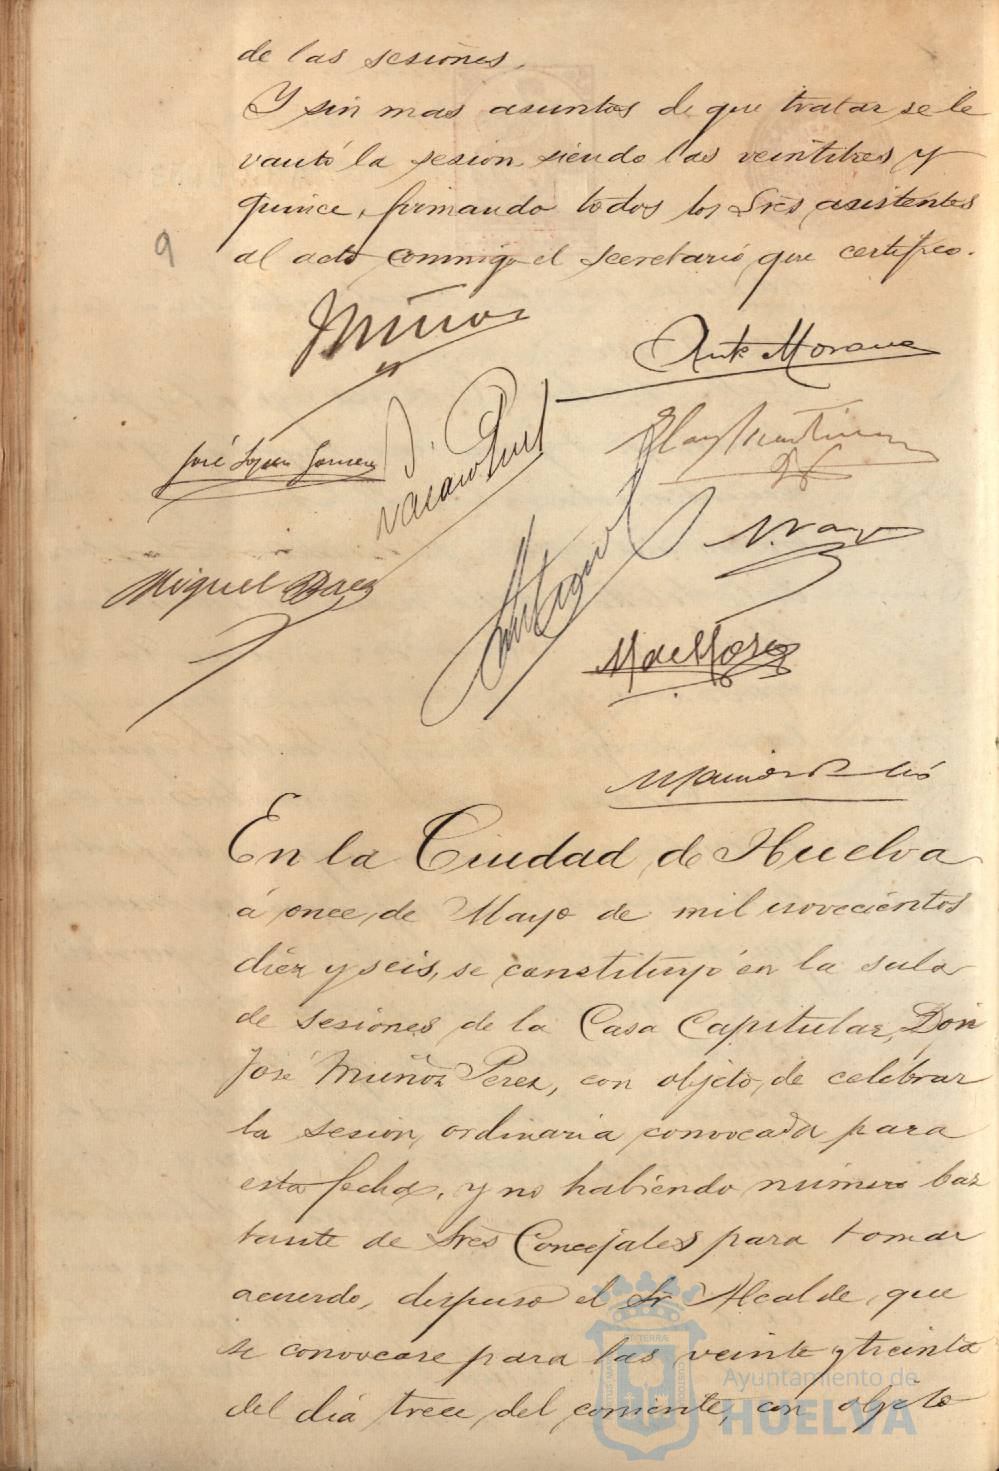 de las sesiones.
Y sin mas asuntos de que tratar se le
vantó la sesion siendo las veintitres y
quince, firmando todos los Sres asistentes
al acto conmigo el secretario que certifico.
9
Muñoz
Antº Morano
José López Gomez
Eloy Martinez
Miguel Baez
En la Ciudad de Huelva
á once de Mayo de mil novecientos
diez y seis, se constituyó en la sala
de sesiones de la Casa Capitular, Don
José Muñoz Perez, con objeto de celebrar
la sesion ordinaria convocada para
esta fecha, y no habiendo número bas
tante de Sres Concejales para tomar
acuerdo, dispuso el Sr Alcalde, que
se convocase para las veinte y treinta
del dia trece del corriente, con objeto
Ayuntamiento de
HUELVA